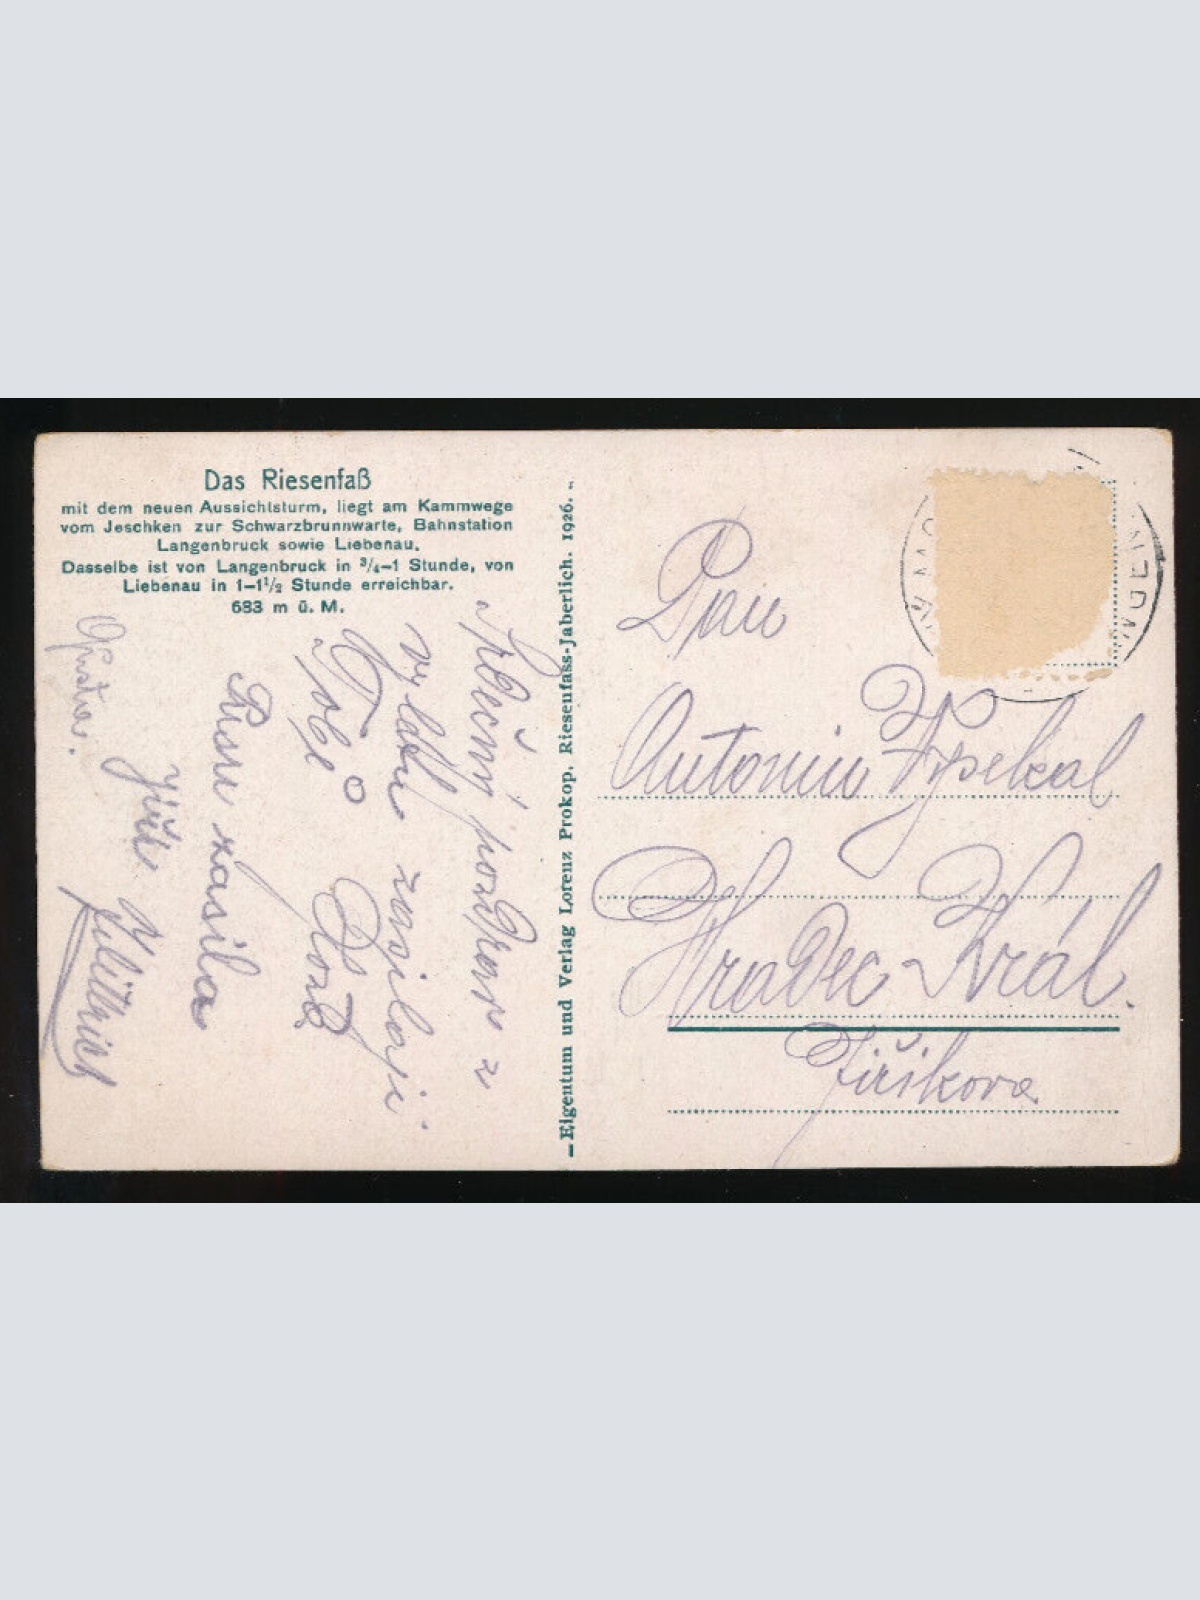 Das Riesenfaß
mit dem neuen Aussichtsturm, liegt am Kammwege
vom Jeschken zur Schwarzbrunnwarte, Bahnstation
Langenbruck sowie Liebenau.
Dasselbe ist von Langenbruck in ³/₄–1 Stunde, von
Liebenau in 1–1¹/₂ Stunde erreichbar.
683 m ü. M.
Srdečný pozdrav z
výletu zasílají
Tobě
zasílá
Jiří
– Eigentum und Verlag Lorenz Prokop, Riesenfass-Jaberlich. 1926. –
Pan
Antonín Vyskal
Hradec Král.
Jiříkova